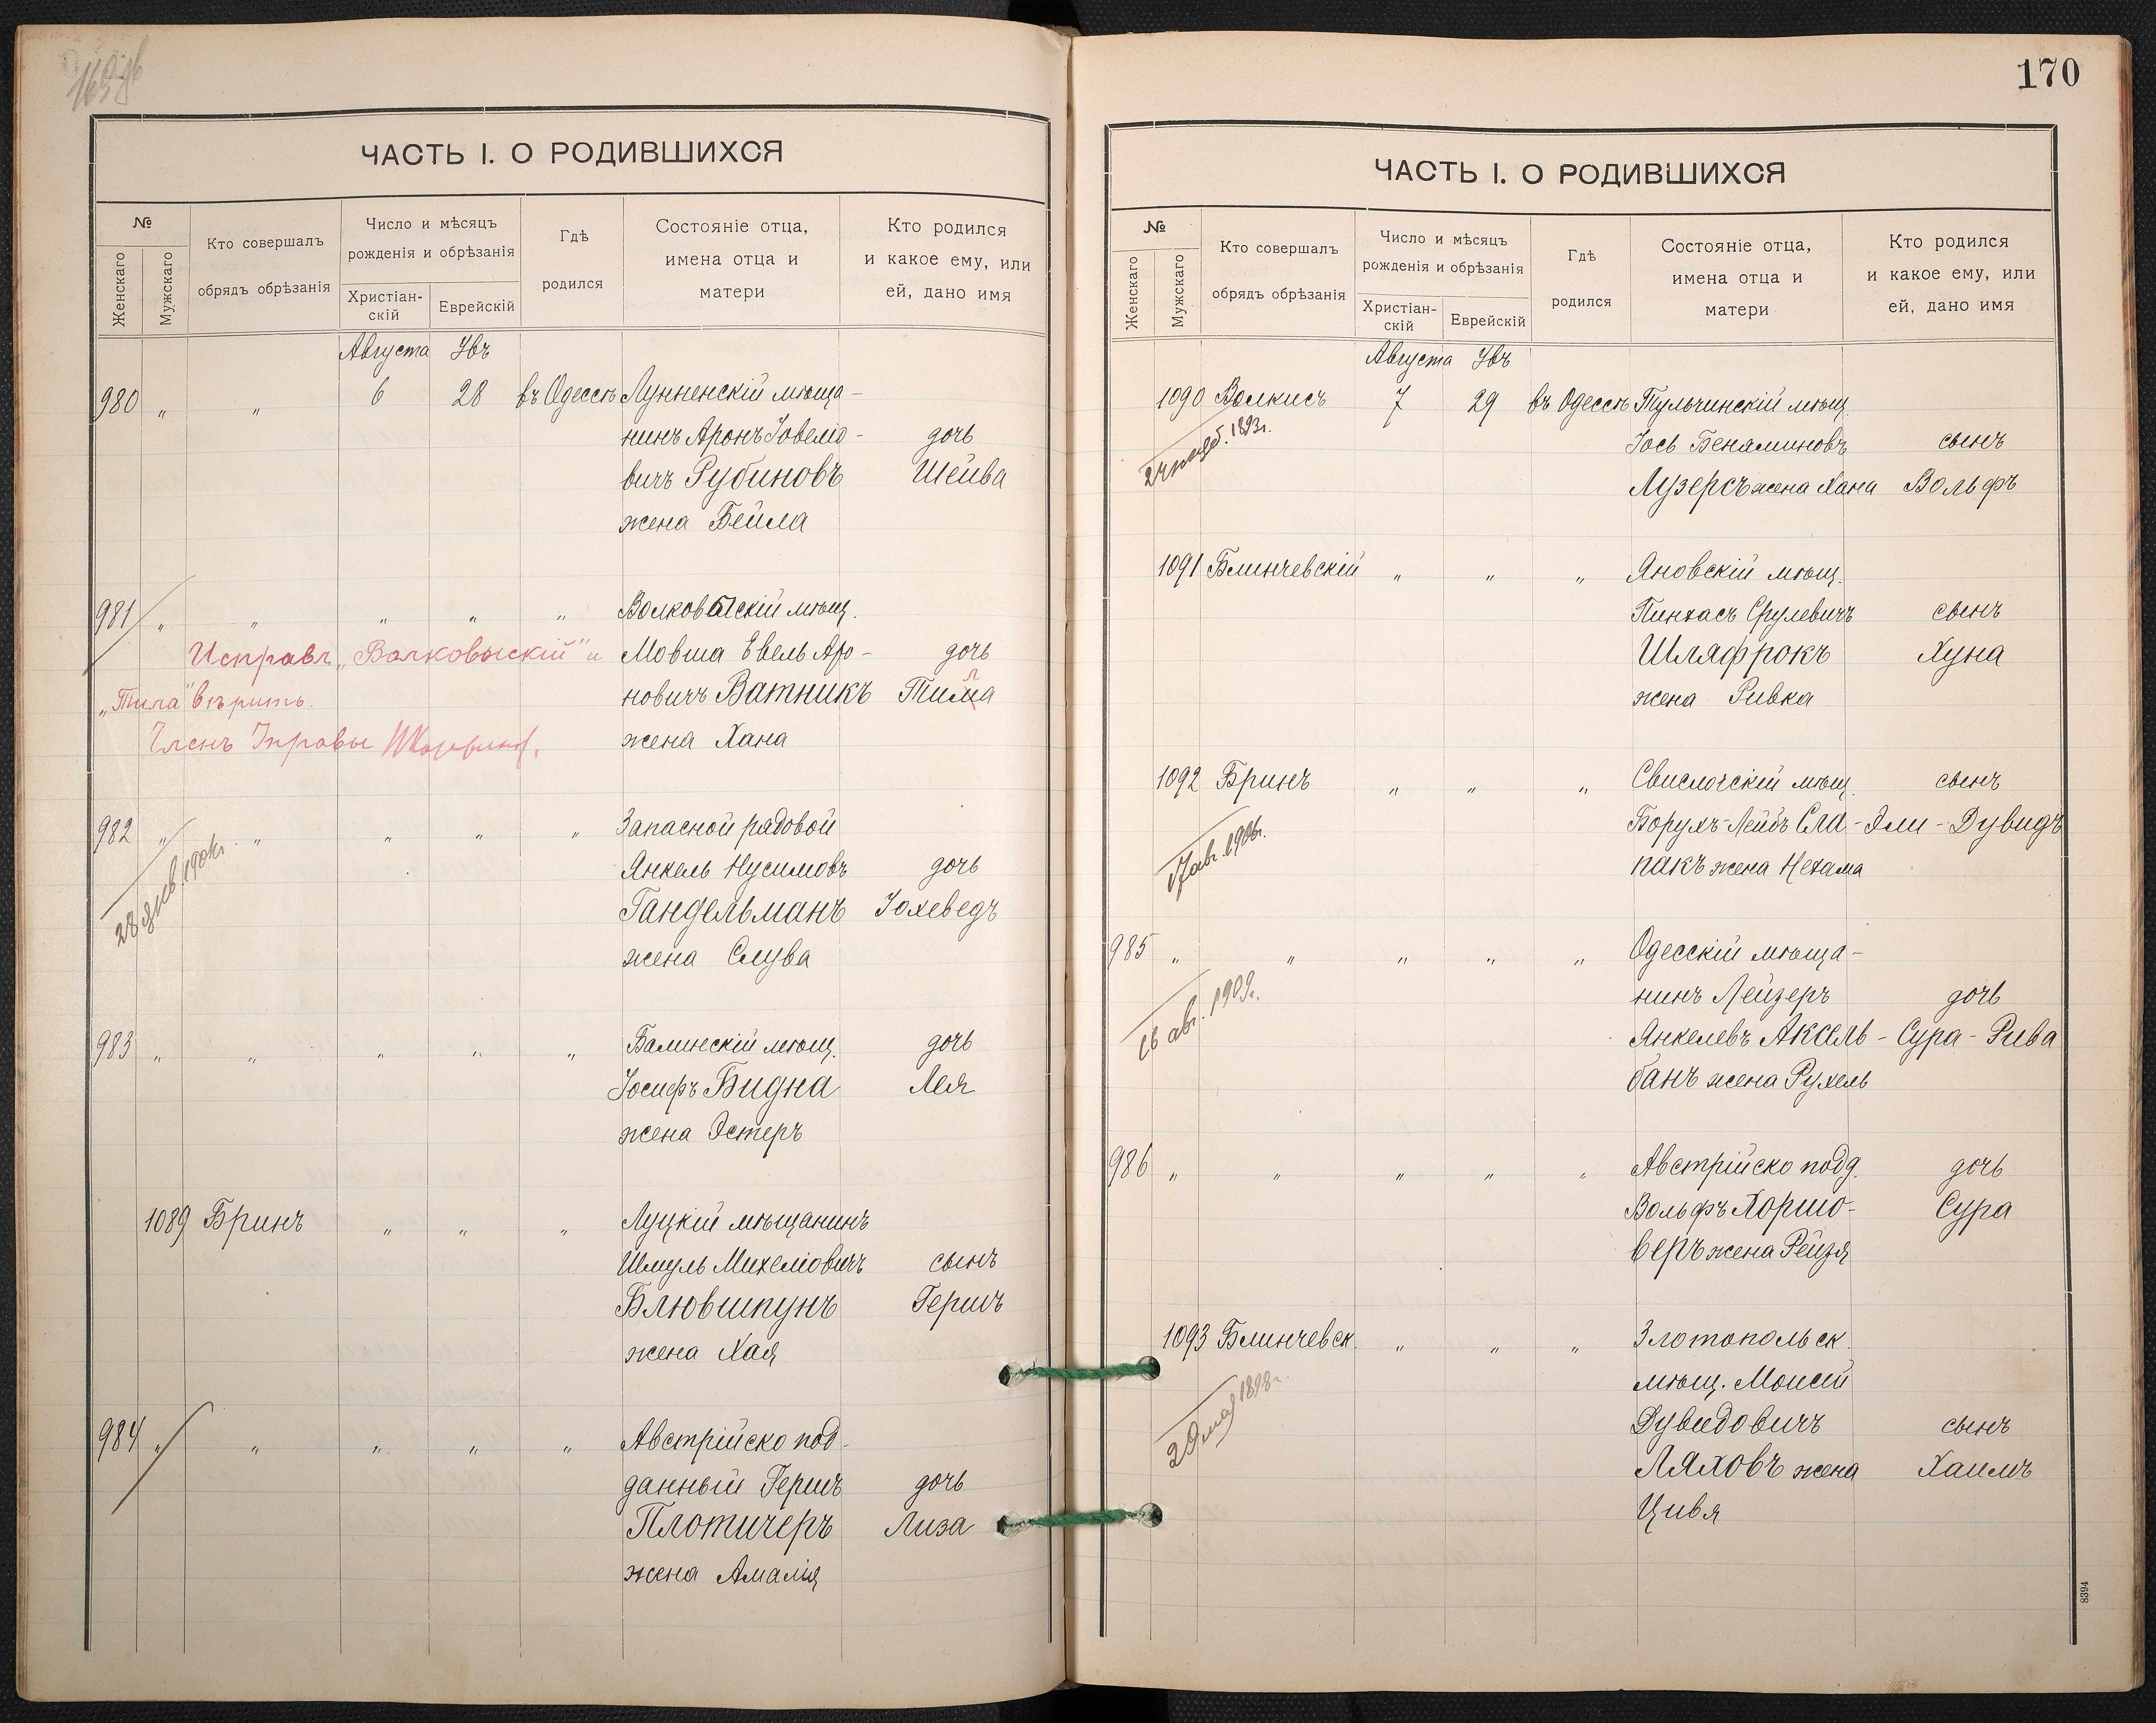 ЧАСТЬ I. О РОДИВШИХСЯ
№
Женскаго
Мужскаго
Кто совершалъ
обрядъ обрѣзанія
Число и мѣсяцъ
рожденія и обрѣзанія
Христіан-
скій
Еврейскій
Гдѣ
родился
Состояніе отца,
имена отца и
матери
Кто родился
и какое ему, или
ей, дано имя
Августа
980 " " 6 28 въ Одессѣ Лунненскій мѣща-
нинъ Аронъ Іовеліо- дочь
вичъ Рубиновъ Шейва
жена Бейла
981 " " " " " Волковыскій мѣщ.
Исправл. „Волковыскій" и Мовша Евель Аро- дочь
„Тила" вѣрить. новичъ Ватникъ Тила
Членъ Управы жена Хана
982 " " " " " Запасной рядовой
Анкель Нусимовъ дочь
28 янв. Гандельманъ Іохеведъ
жена Слува
983 " " " " " Балинскій мѣщ. дочь
Іосифъ Бидна Лея
жена Эстеръ
1089 Бринъ " " " Луцкій мѣщанинъ
Шмуль Михеліовичъ сынъ
Блювшпунъ Гершъ
жена Хая
984 " " " " " Австрійско под-
данный Гершъ дочь
Плотичеръ Лиза
жена Амалія
170
ЧАСТЬ I. О РОДИВШИХСЯ
№
Женскаго
Мужскаго
Кто совершалъ
обрядъ обрѣзанія
Число и мѣсяцъ
рожденія и обрѣзанія
Христіан-
скій
Еврейскій
Гдѣ
родился
Состояніе отца,
имена отца и
матери
Кто родился
и какое ему, или
ей, дано имя
Августа
1090 Волкисъ 7 29 въ Одессѣ Тульчинскій мѣщ.
1893г. Іось Беняминовъ сынъ
Лузерсъ жена Хана Вольфъ
1091 Блинчевскій " " " Яновскій мѣщ.
Пинхасъ Срулевичъ сынъ
Шляфрокъ Хуна
жена Ривка
1092 Бринъ " " " Свислочскій мѣщ. сынъ
Борухъ-Лейбъ Сла- Эли-Дувидъ
17 авг. 1906г. пакъ жена Нехама
985 " " " " " Одесскій мѣща-
нинъ Лейзеръ дочь
16 авг. 1909г. Анкелевъ Аксель- Сура-Рива
банъ жена Рухель
986 " " " " " Австрійско подд. дочь
Вольфъ Хоршо- Сура
веръ жена Рейзя
1093 Блинчевск. " " " Златопольск.
мѣщ. Моисей
29 мая 1898г. Дувидовичъ сынъ
Ляховъ жена Хаимъ
Цивя
8394